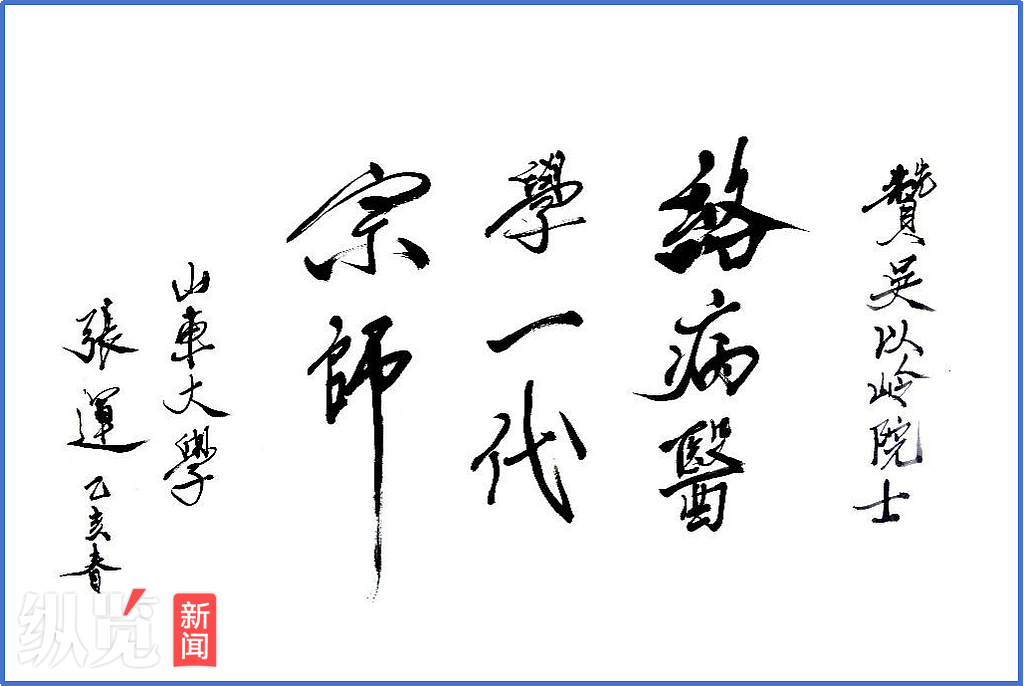 贊吴以岭院士
络病醫
學一代
宗師
山東大學
張運 乙亥春
纵览
新闻